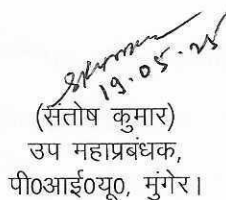 19.05.25
(संतोष कुमार)
उप महाप्रबंधक,
पी०आई०यू०, मुंगेर।